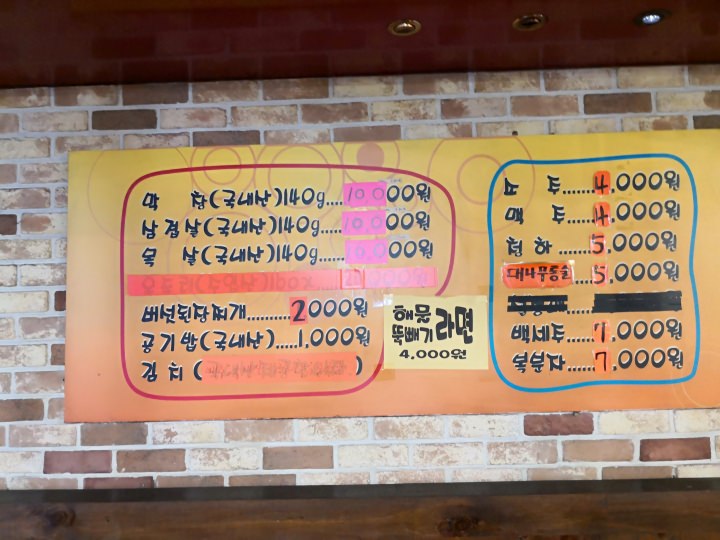 막 창(국내산)140g....10000원
삼겹살(국내산)140g....10000원
목 살(국내산)140g....10000원
버섯된장찌개........2000원
공기밥(국내산).....1.000원
김 치 ( )
해물
뚝배기 라면
4,000원
소 주......4.000원
맥 주......4.000원
청 하......5.000원
대나무통술...5.000원
백세주......7.000원
복분자......7.000원